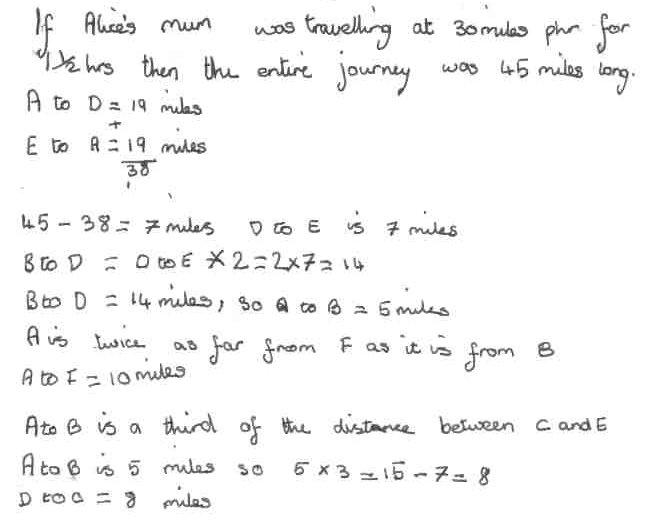 If Alice's mum was travelling at 30 miles phr for
1½ hrs then the entire journey was 45 miles long.
A to D = 19 miles
+
E to A = 19 miles
38
45 - 38 = 7 miles D to E is 7 miles
B to D = D to E × 2 = 2×7 = 14
B to D = 14 miles, so A to B = 5 miles
A is twice as far from F as it is from B
A to F = 10 miles
A to B is a third of the distance between C and E
A to B is 5 miles so 5 × 3 = 15 - 7 = 8
D to C = 8 miles